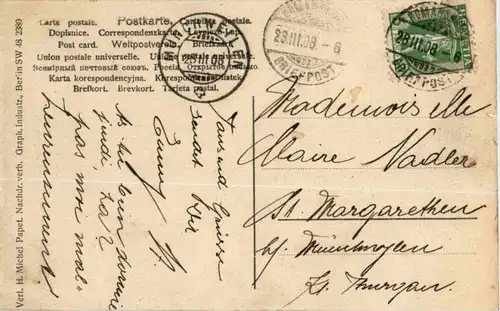 Carte postale. Postkarte. Cartolina postale.
Dopisnice. Correspondenzkarte. Levelező-Lap.
Post card. Weltpostverein. Briefkaart.
Union postale universelle. Unione postale
Всемірный почтовый союзъ. Россія. Открытое письмо.
Karta korespondencyjna. Korespondenční lístek.
Brefkort. Brevkort. Tarjeta postal.
Verl. H. Michel Papet. Nachdr. verb. Graph. Industr., Berlin SW 48 2380
23 III 08
28 III. 08 - 6
BRIEFPOST
28 III. 08 - 6
BRIEFPOST
Mademoiselle
Claire Nadler
St. Margarethen
b/ Münchwylen
Kt. Thurgau.
Tausend Grüsse
sendet Dir
Emmy
As tu bien dormie
jeudi,
pas moi mal-
heureusement